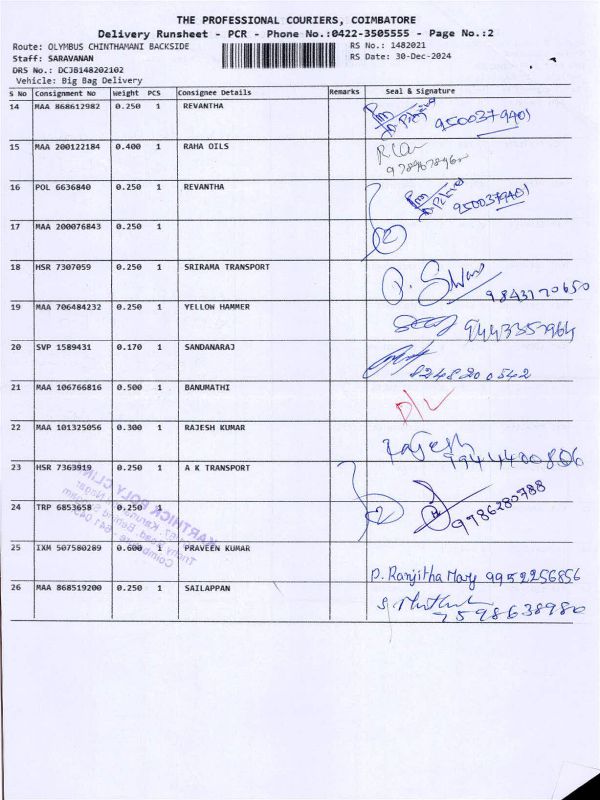 THE PROFESSIONAL COURIERS, COIMBATORE
Delivery Runsheet - PCR - Phone No.:0422-3505555 - Page No.:2
Route: OLYMBUS CHINTHAMANI BACKSIDE RS No.: 1482021
Staff: SARAVANAN RS Date: 30-Dec-2024
DRS No.: DCJB148202102
Vehicle: Big Bag Delivery
S No Consignment No Weight PCS Consignee Details Remarks Seal & Signature
14 MAA 868612982 0.250 1 REVANTHA 9500379401
15 MAA 200122184 0.400 1 RAHA OILS
16 POL 6636840 0.250 1 REVANTHA 9500379401
17 MAA 200076843 0.250 1 2
18 HSR 7307059 0.250 1 SRIRAMA TRANSPORT 9843170650
19 MAA 706484232 0.250 1 YELLOW HAMMER 9443357964
20 SVP 1589431 0.170 1 SANDANARAJ 8248200542
21 MAA 106766816 0.500 1 BANUMATHI D/L
22 MAA 101325056 0.300 1 RAJESH KUMAR Rajesh 9944400806
23 HSR 7363919 0.250 1 A K TRANSPORT 9786280788
24 TRP 6853658 0.250 1 2
25 IXM 507580289 0.600 1 PRAVEEN KUMAR P. Ranjitha Mary 9952256856
26 MAA 868519200 0.250 1 SAILAPPAN 7598638980
KARTHICK POLY CLINIC